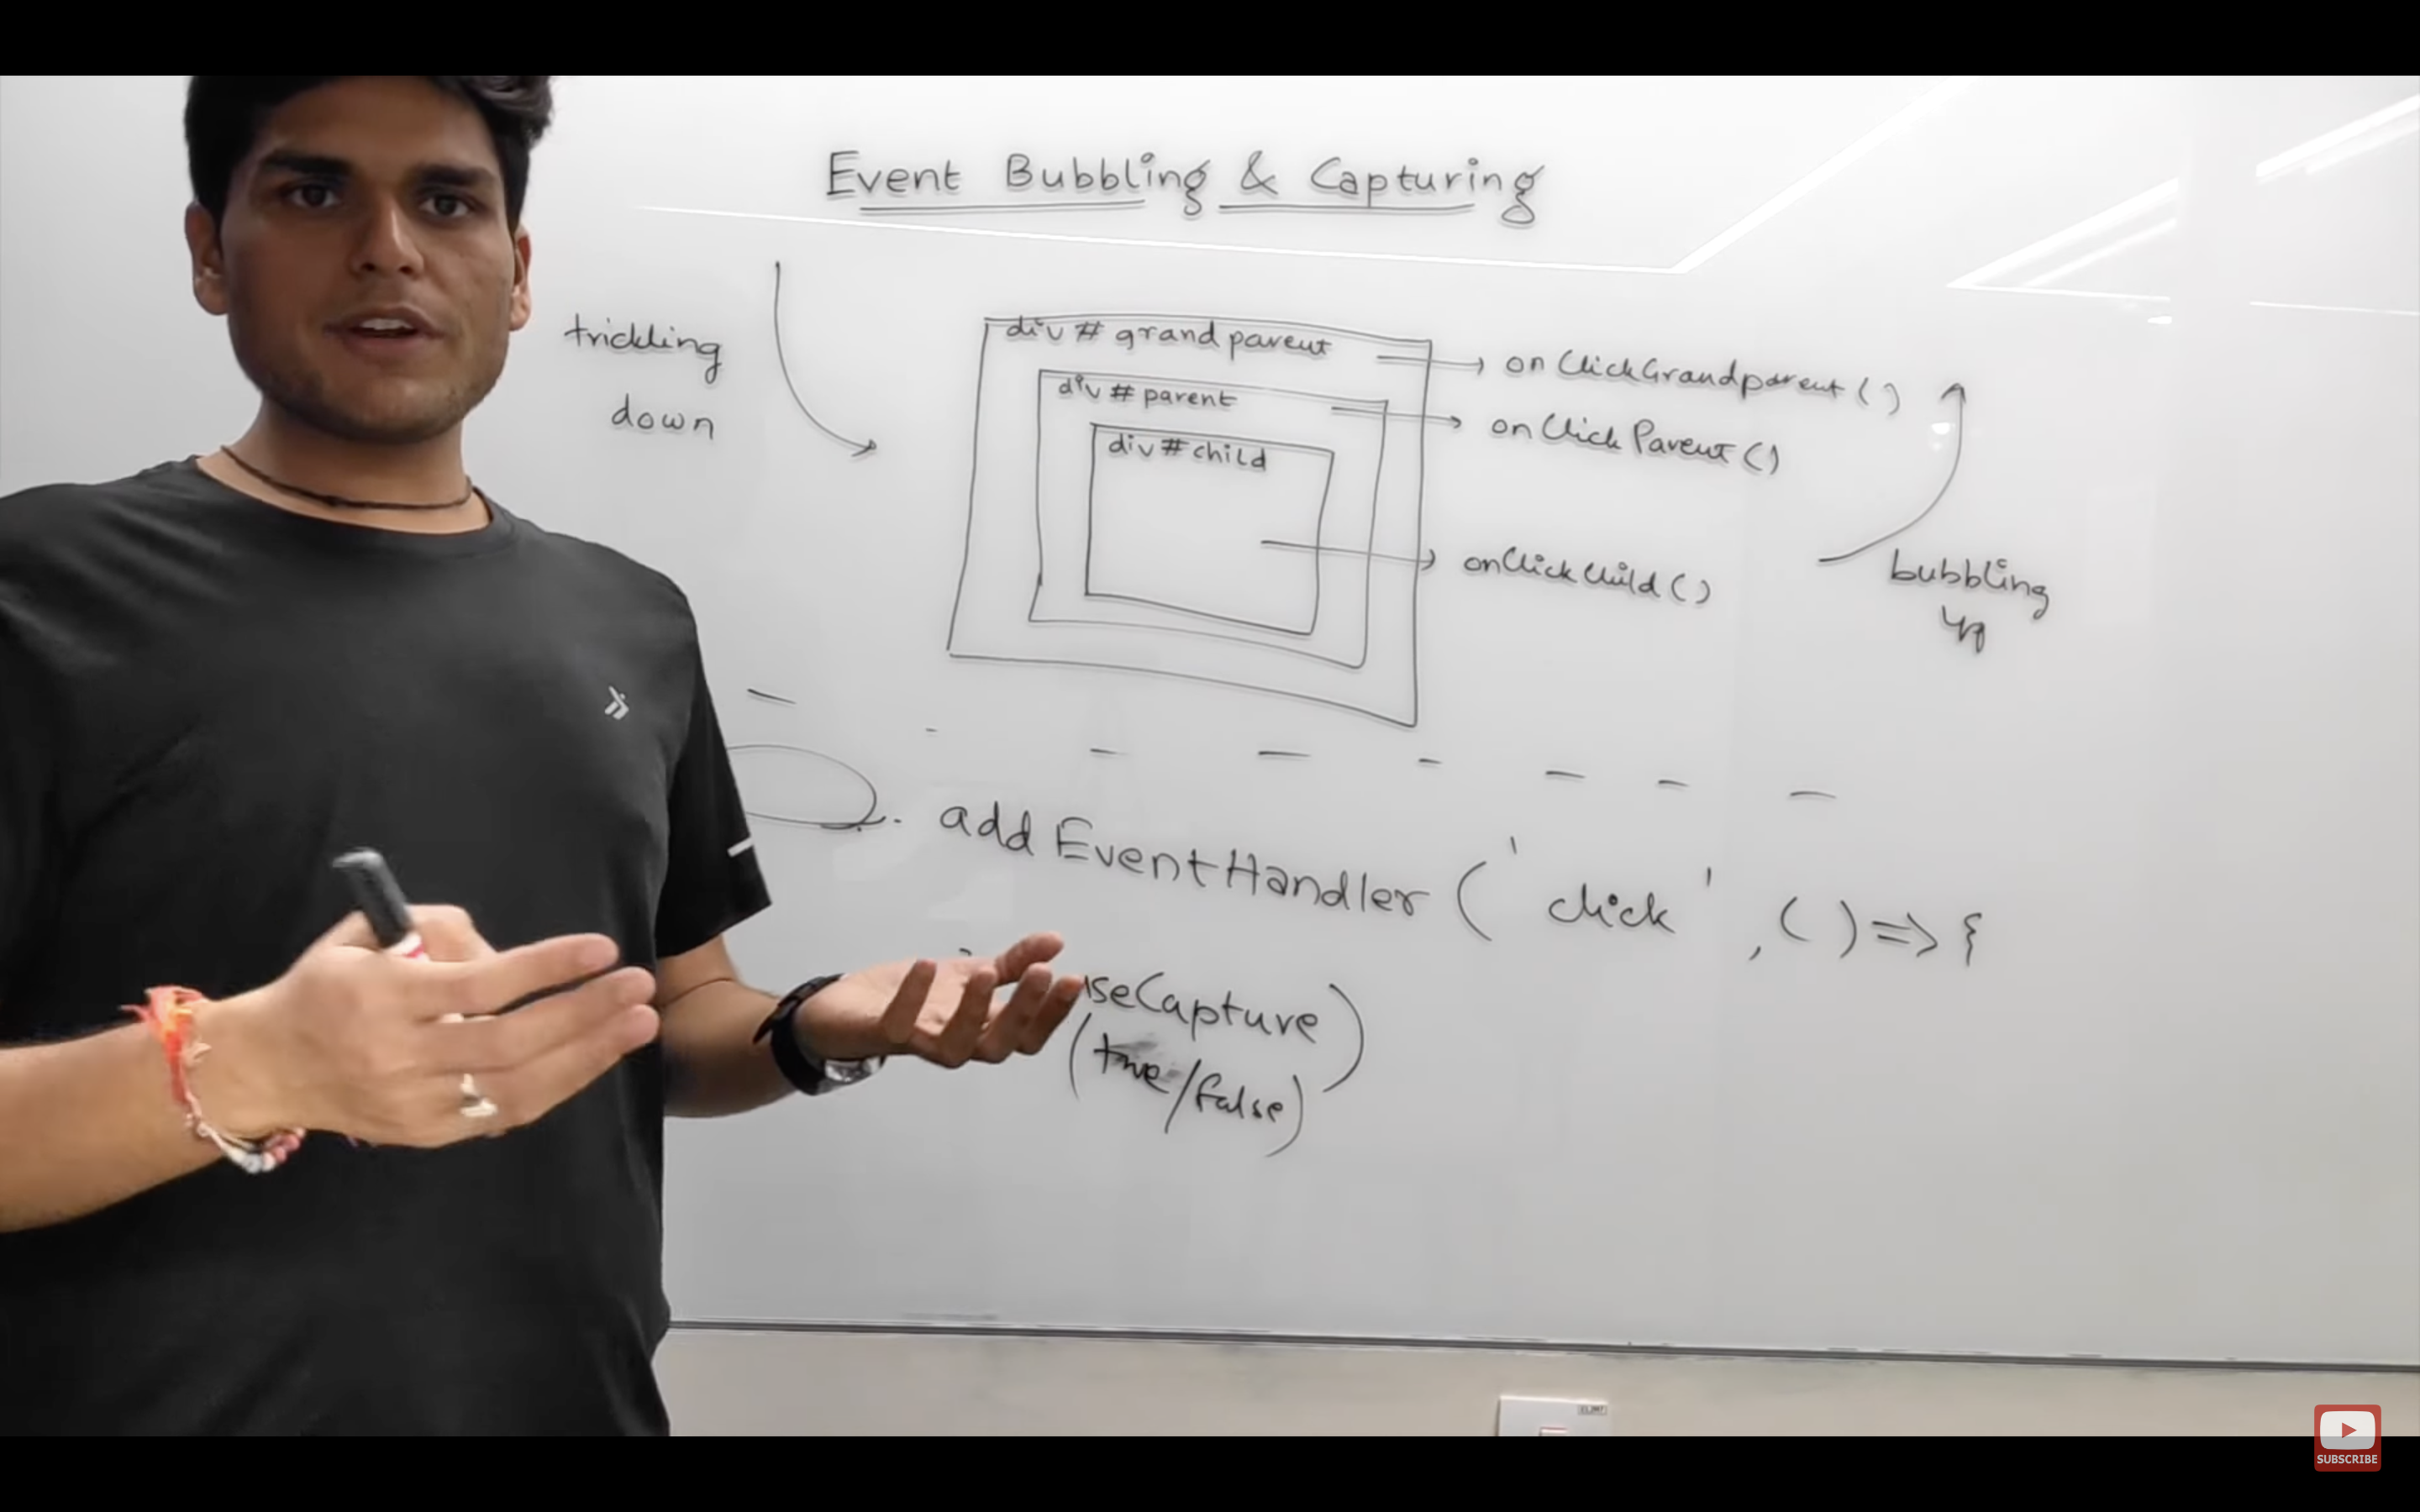 Event Bubbling & Capturing
trickling
down
div # grandparent
onClickGrandparent ( )
div # parent
onClickParent ( )
div # child
onClickChild ( )
bubbling
up
. addEventHandler ( ' click ' , ( ) => {
seCapture )
(true/false)
SUBSCRIBE